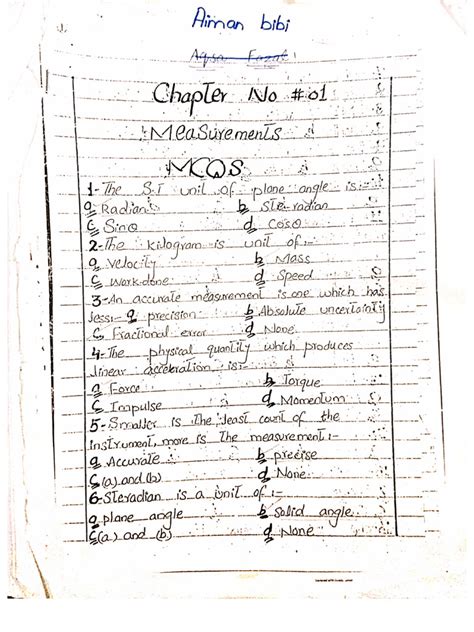 Aiman bibi
Aqsa Fazal
Chapter No #01
Measurements
MCQS
1-The S.I unit of plane angle is:-
a Radian b Ste radian
c Sinθ d Cosθ
2-The kilogram is unit of:-
a Velocity b Mass
c Work done d Speed
3-An accurate measurement is one which has
less:- a precision b Absolute uncertainty
c Fractional error d None
4-The physical quantity which produces
linear acceleration is:-
a Force b Torque
c Impulse d Momentum
5-Smaller is the least count of the
instrument, more is the measurement:-
a Accurate b precise
c (a) and (b) d None
6-Steradian is a unit of:-
a plane angle b solid angle
c (a) and (b) d None